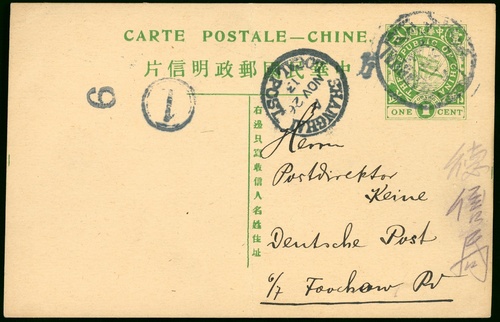 CARTE POSTALE—CHINE.
片信明政郵國民華中
REPUBLIC OF CHINA
ONE 1 CENT
SHANGHAI
LOCAL POST
NOV 26
13
1
6
右邊只寫收信人名姓住址
Herrn
Postdirektor
Keine
Deutsche Post
Foochow
德信局